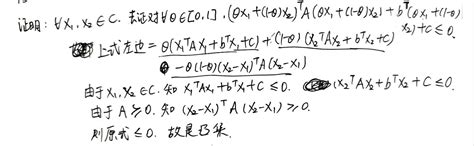 证明: ∀x₁,x₂∈C. 求证对∀θ∈[0,1], (θx₁+(1-θ)x₂)ᵀA(θx₁+(1-θ)x₂)+bᵀ(θx₁+(1-θ)x₂)+c≤0.
上式左边=θ(x₁ᵀAx₁+bᵀx₁+c)+(1-θ)(x₂ᵀAx₂+bᵀx₂+c)
-θ(1-θ)(x₂-x₁)ᵀA(x₂-x₁)
由于x₁,x₂∈C. 知 x₁ᵀAx₁+bᵀx₁+c≤0. (x₂ᵀAx₂+bᵀx₂+c≤0.
由于A≽0. 知 (x₂-x₁)ᵀA(x₂-x₁)≥0.
则原式≤0. 故是凸集.